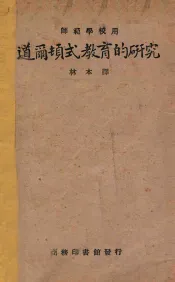 師範學校用
道爾頓式教育的研究
林本譯
商務印書館發行